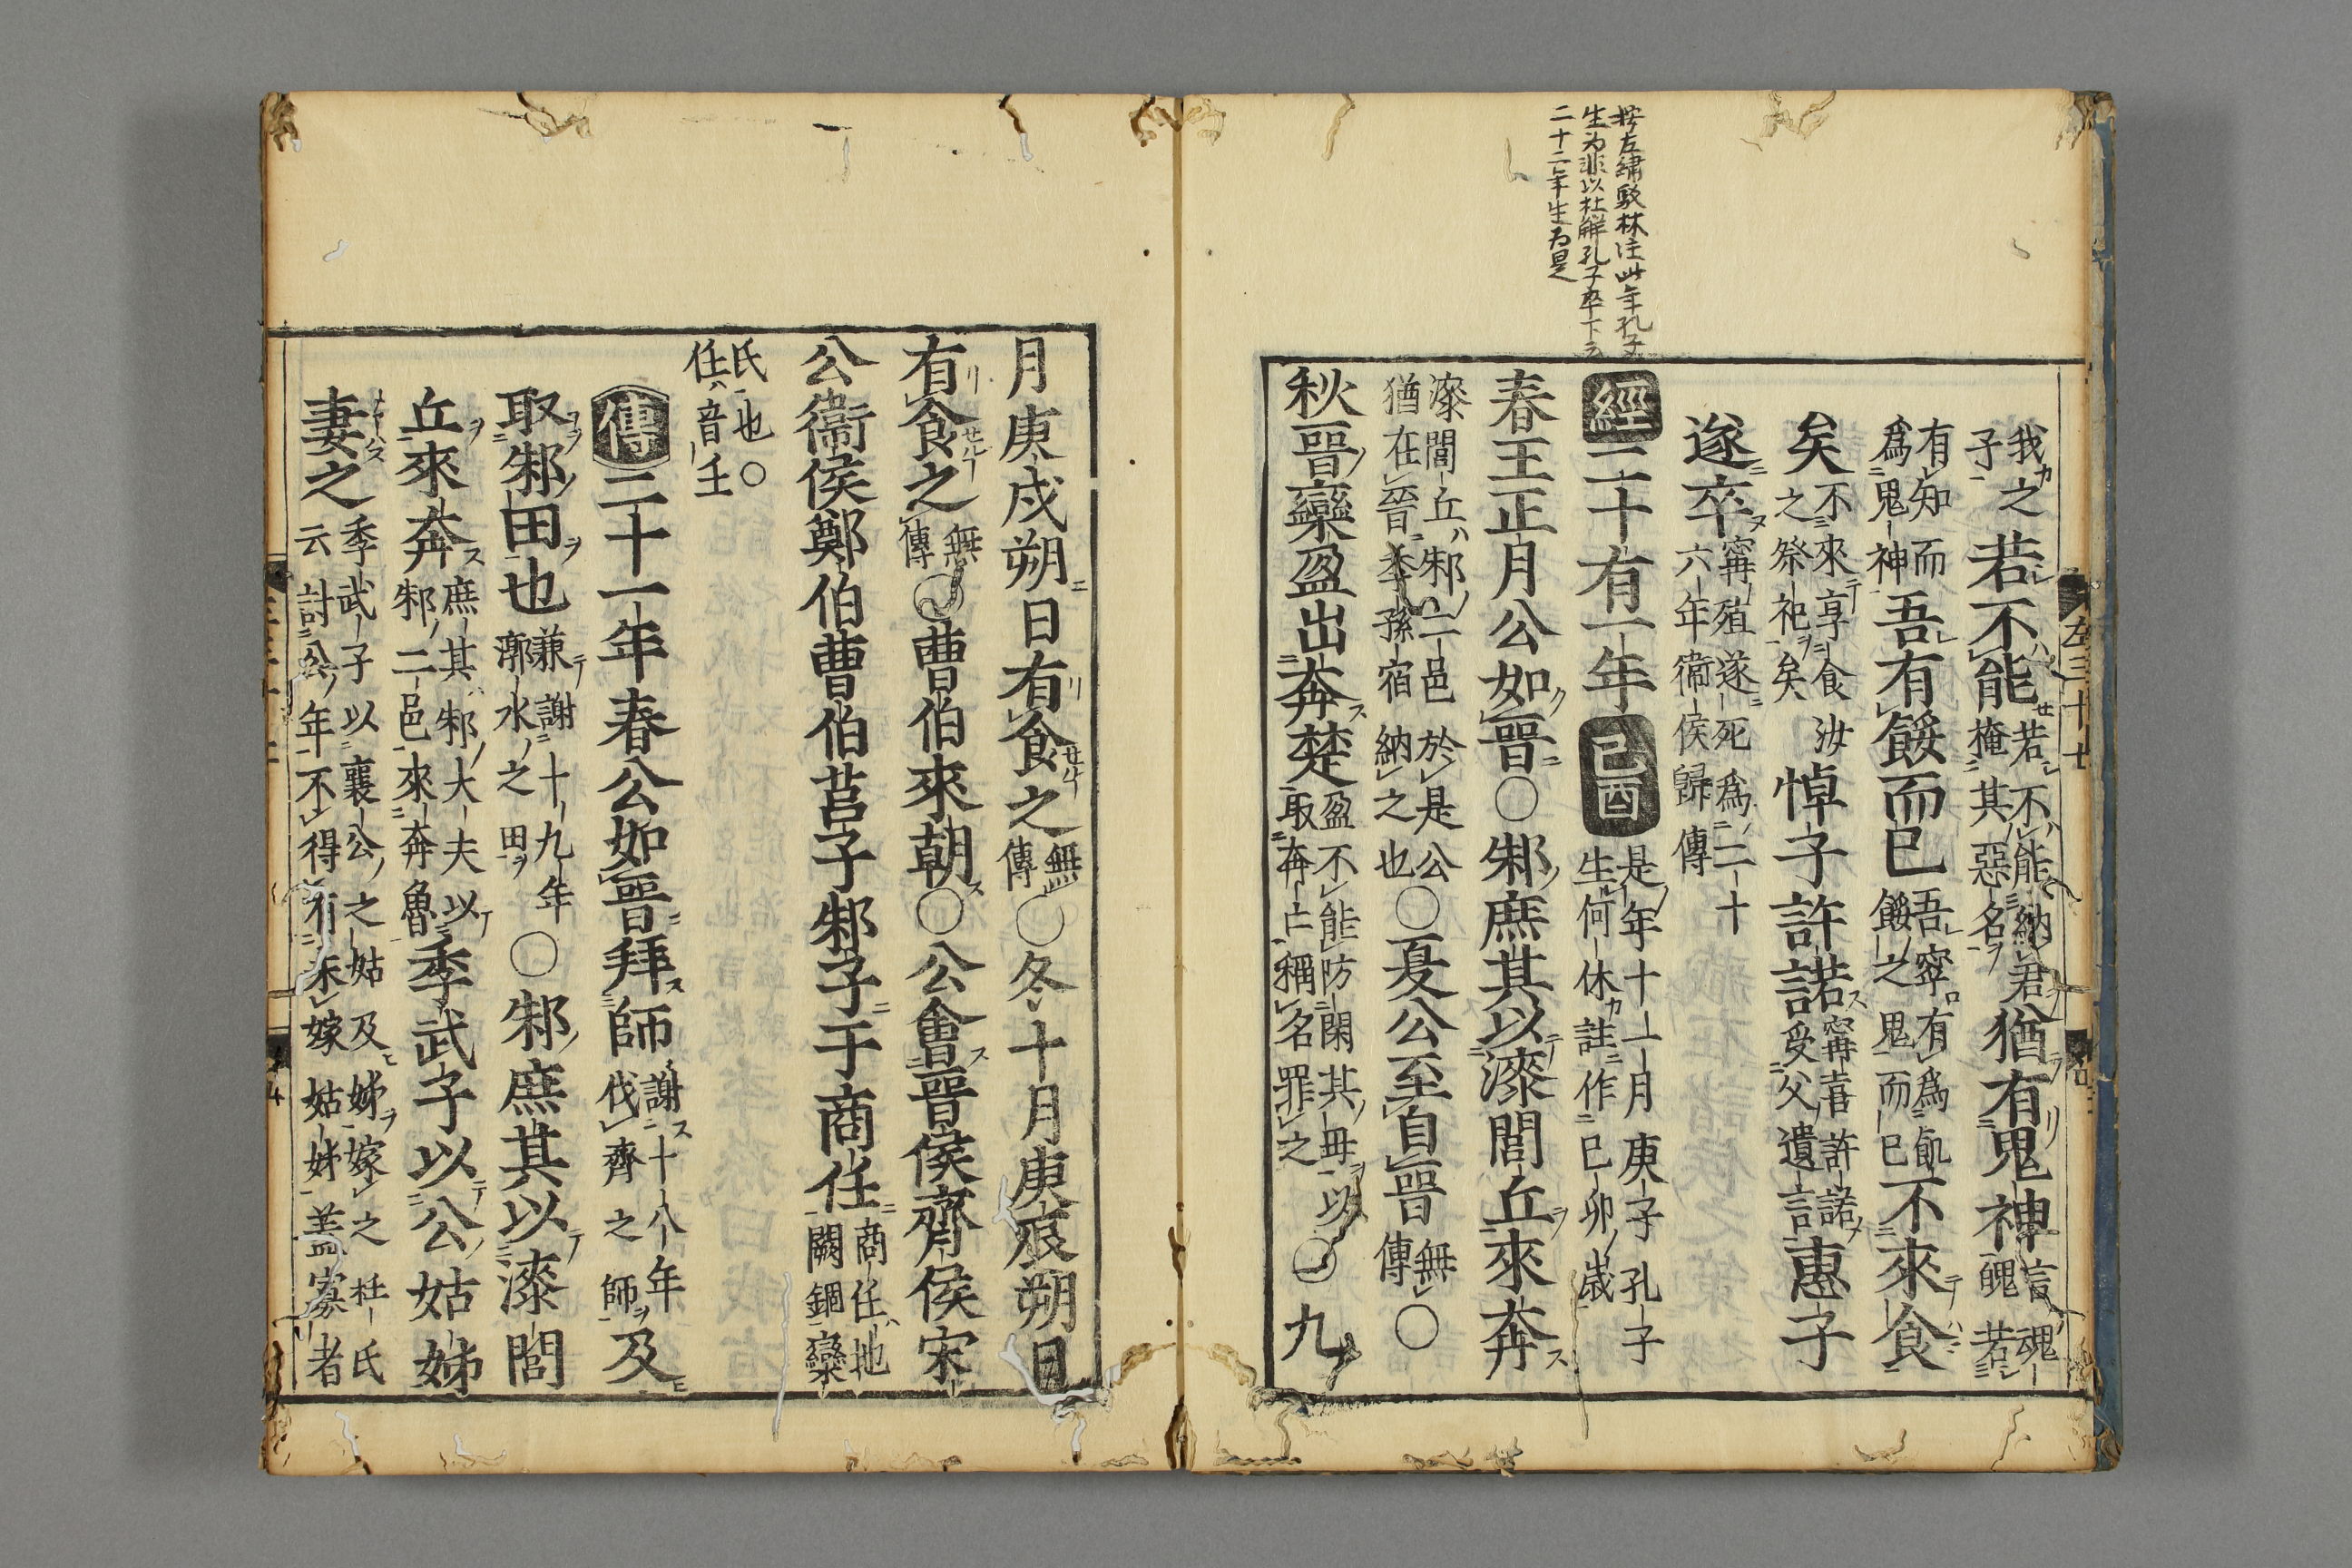 按左繡駁林注此年孔子
生為非以杜解孔子卒下云
二十二年生為是
左三十七
我之
子
若不能
若不能納君
掩其惡名
猶有鬼神
言魂
魄若
有知而
爲鬼神
吾有餒而已
吾寧有爲飢
餒之鬼而已
不來食
矣
不來享食汝
之祭祀矣
悼子許諾
寗喜許諾
受父遺言
惠子
遂卒
寗殖遂死爲二十
六年衞侯歸傳
經二十有一年
己酉
是年十一月庚子孔子
生何休註作己卯歲
春王正月公如晉○邾庶其以漆閭丘來奔
漆閭丘邾二邑於是公
猶在晉季孫宿納之也
○夏公至自晉
無
傳
○
秋晉欒盈出奔楚
盈不能防閑其毋以
取奔亡稱名罪之
○九
月庚戌朔日有食之
無
傳
○冬十月庚辰朔日
有食之
無
傳
○曹伯來朝○公會晉侯齊侯宋
公衞侯鄭伯曹伯莒子邾子于商任
商任地
闕錮欒
氏也○
任音壬
傳二十一年春公如晉拜師
謝十八年
伐齊之師
及
取邾田也
兼謝十九年
漷水之田
○邾庶其以漆閭
丘來奔
庶其邾大夫以
邾二邑來奔魯
季武子以公姑姊
妻之
季武子以襄公之姑及姊嫁之杜氏
云計公年不得有未嫁姑姊盖寡者